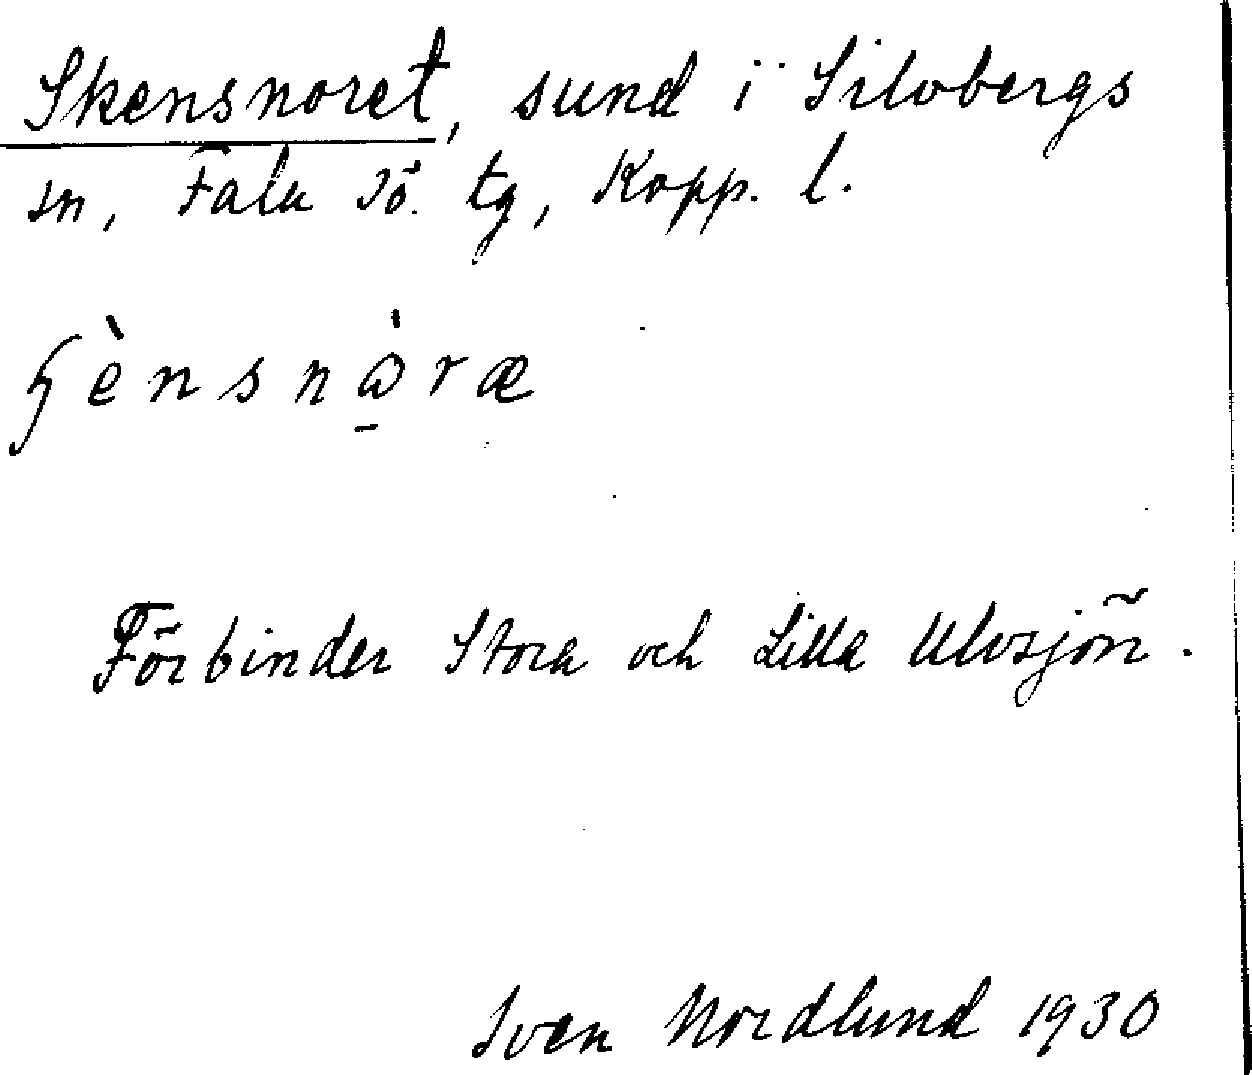 Skensnoret, sund i Silvbergs
sn, Falu sö. tg, Kopp. l.
Förbinder Stora och Lilla Ulvsjön.
Sven Nordlund 1930